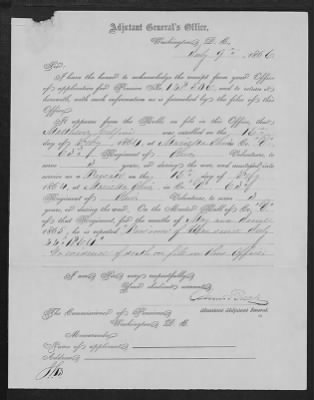 Adjutant General's Office,
Washington, D. C.
July 9th, 1866
Sir:
I have the honor to acknowledge the receipt from your Office
of application for Pension No. and to return it
herewith, with such information as is furnished by the files of this
Office.
It appears from the Rolls on file in this Office, that
was enrolled on the 16th
day of Feby, 1864, at Marietta Ohio in Co. "C"
63rd Regiment of Ohio Volunteers, to
serve 3 years, or during the war, and mustered into
service as a Private on the 16th day of Feby
1864, at Marietta Ohio, in Co. "C" 63rd
Regiment of Ohio Volunteers, to serve 3
years, or during the war. On the Muster Roll of Co. "C"
of that Regiment, for the months of May and June,
1865, he is reported "Prisoner of War since July
22nd 1864"
No evidence of death on file in this Office
I am, Sir, very respectfully,
Your obedient servant,
Assistant Adjutant General.
The Commissioner of Pensions,
Washington, D. C.
Memoranda:
Name of applicant,
Address,